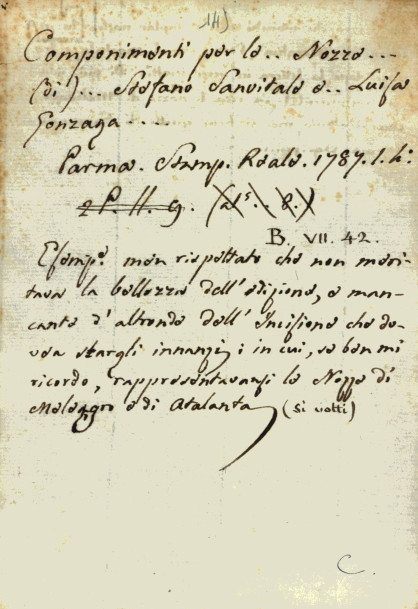 141)
Componimenti per le.. Nozze...
(di)... Stefano Sanvitale e.. Luisa
Gonzaga....
Parma. Stamp. Reale. 1787. 1. h:
B. VII. 42.
Esempe. men rispettato che non meri-
tava la bellezza dell'edizione, e man-
cante d'altronde dell'Incisione che do-
vea stargli innanzi, i in cui, se ben mi
ricordo, rappresentavansi le Nozze di
Meleagro e di Atalanta (si volti)
C.